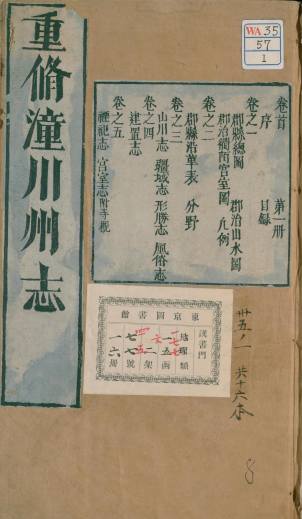 WA35
57
1
重脩潼川州志
卷首　第一冊
序　目錄
卷之一
郡縣總圖　郡治山水圖
郡治衢術官室圖　凡例
卷之二
郡縣沿革表　分野
卷之三
山川志　疆域志　形勝志　風俗志
卷之四
建置志
卷之五
禋祀志　宮室志附寺觀
東京圖書館
漢書門
地理類
函
架
號
冊
卅五ノ一
共十六本
8